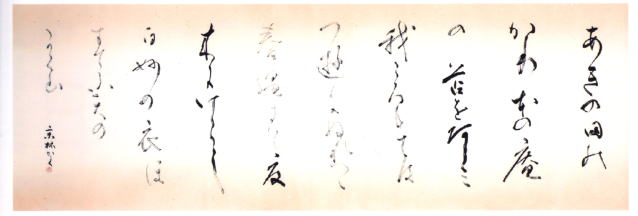 あきの田の
かりほの庵
の苫をあらみ
我ころもては
つ遊にぬれつゝ
春過きて夏
来にけらし
白妙の衣ほ
すてふ天の
かく山